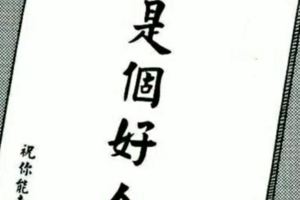 是個好
祝你能